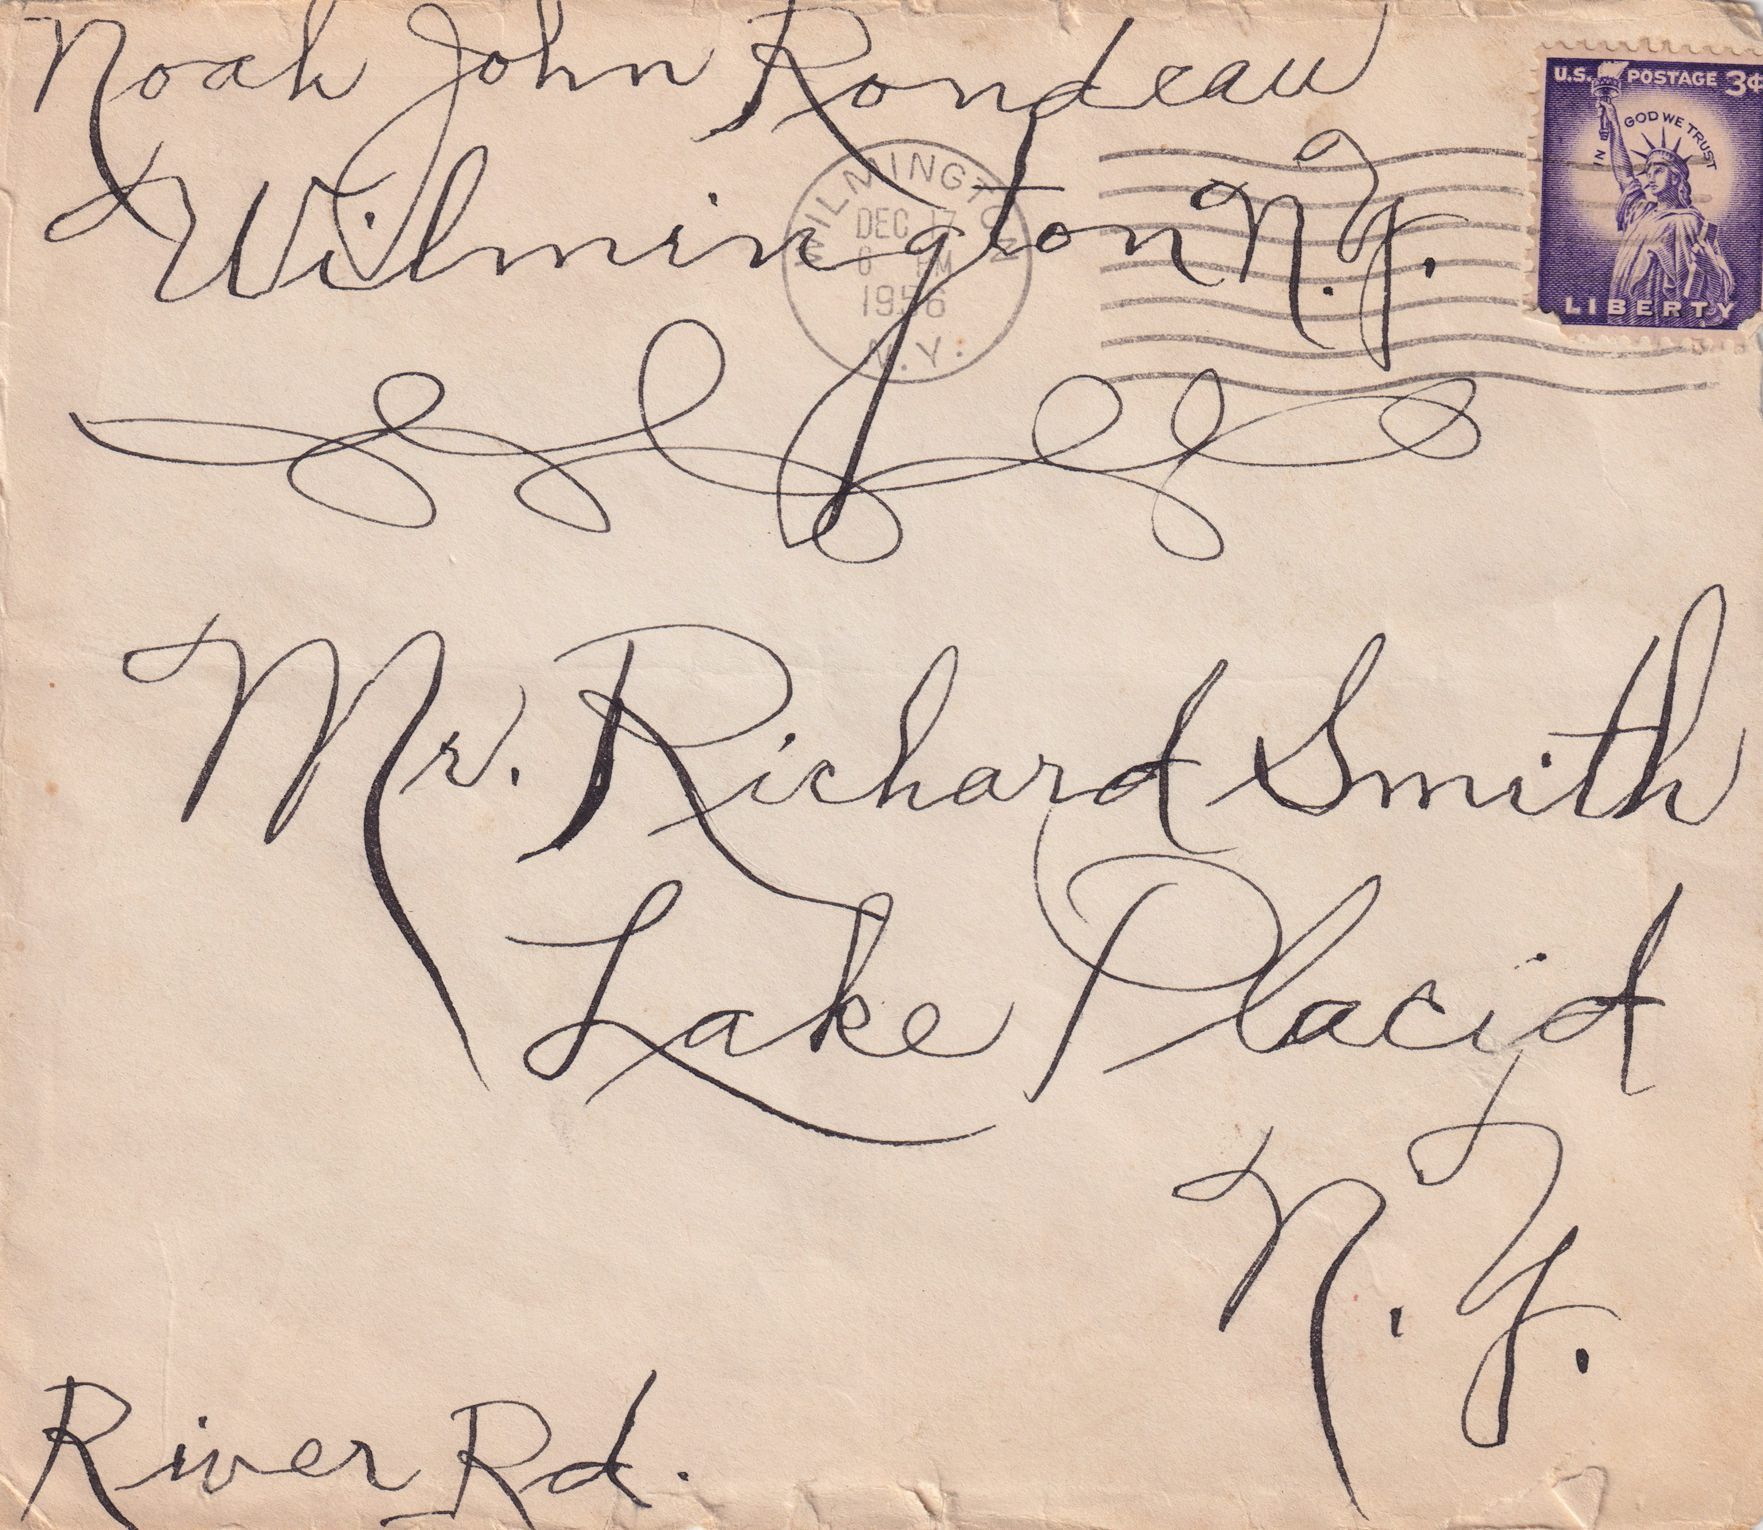 Noah John Rondeau
Wilmington N.Y.
WILMINGTON
DEC 17
PM
1956
N.Y.
U.S. POSTAGE 3¢
IN GOD WE TRUST
LIBERTY
Mr. Richard Smith
Lake Placid
N.Y.
River Rd.